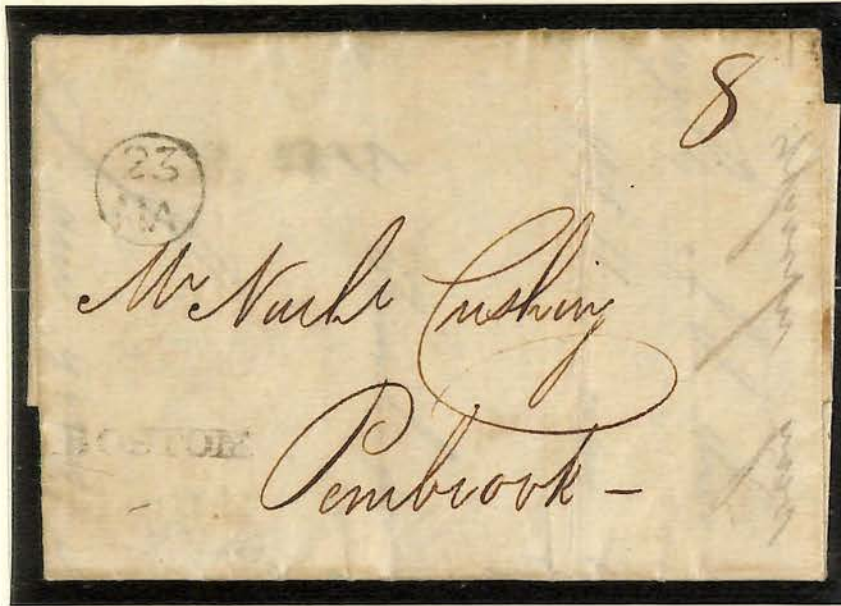 8
23
MA
Mr Nathl Cushing
BOSTON
Pembrook —